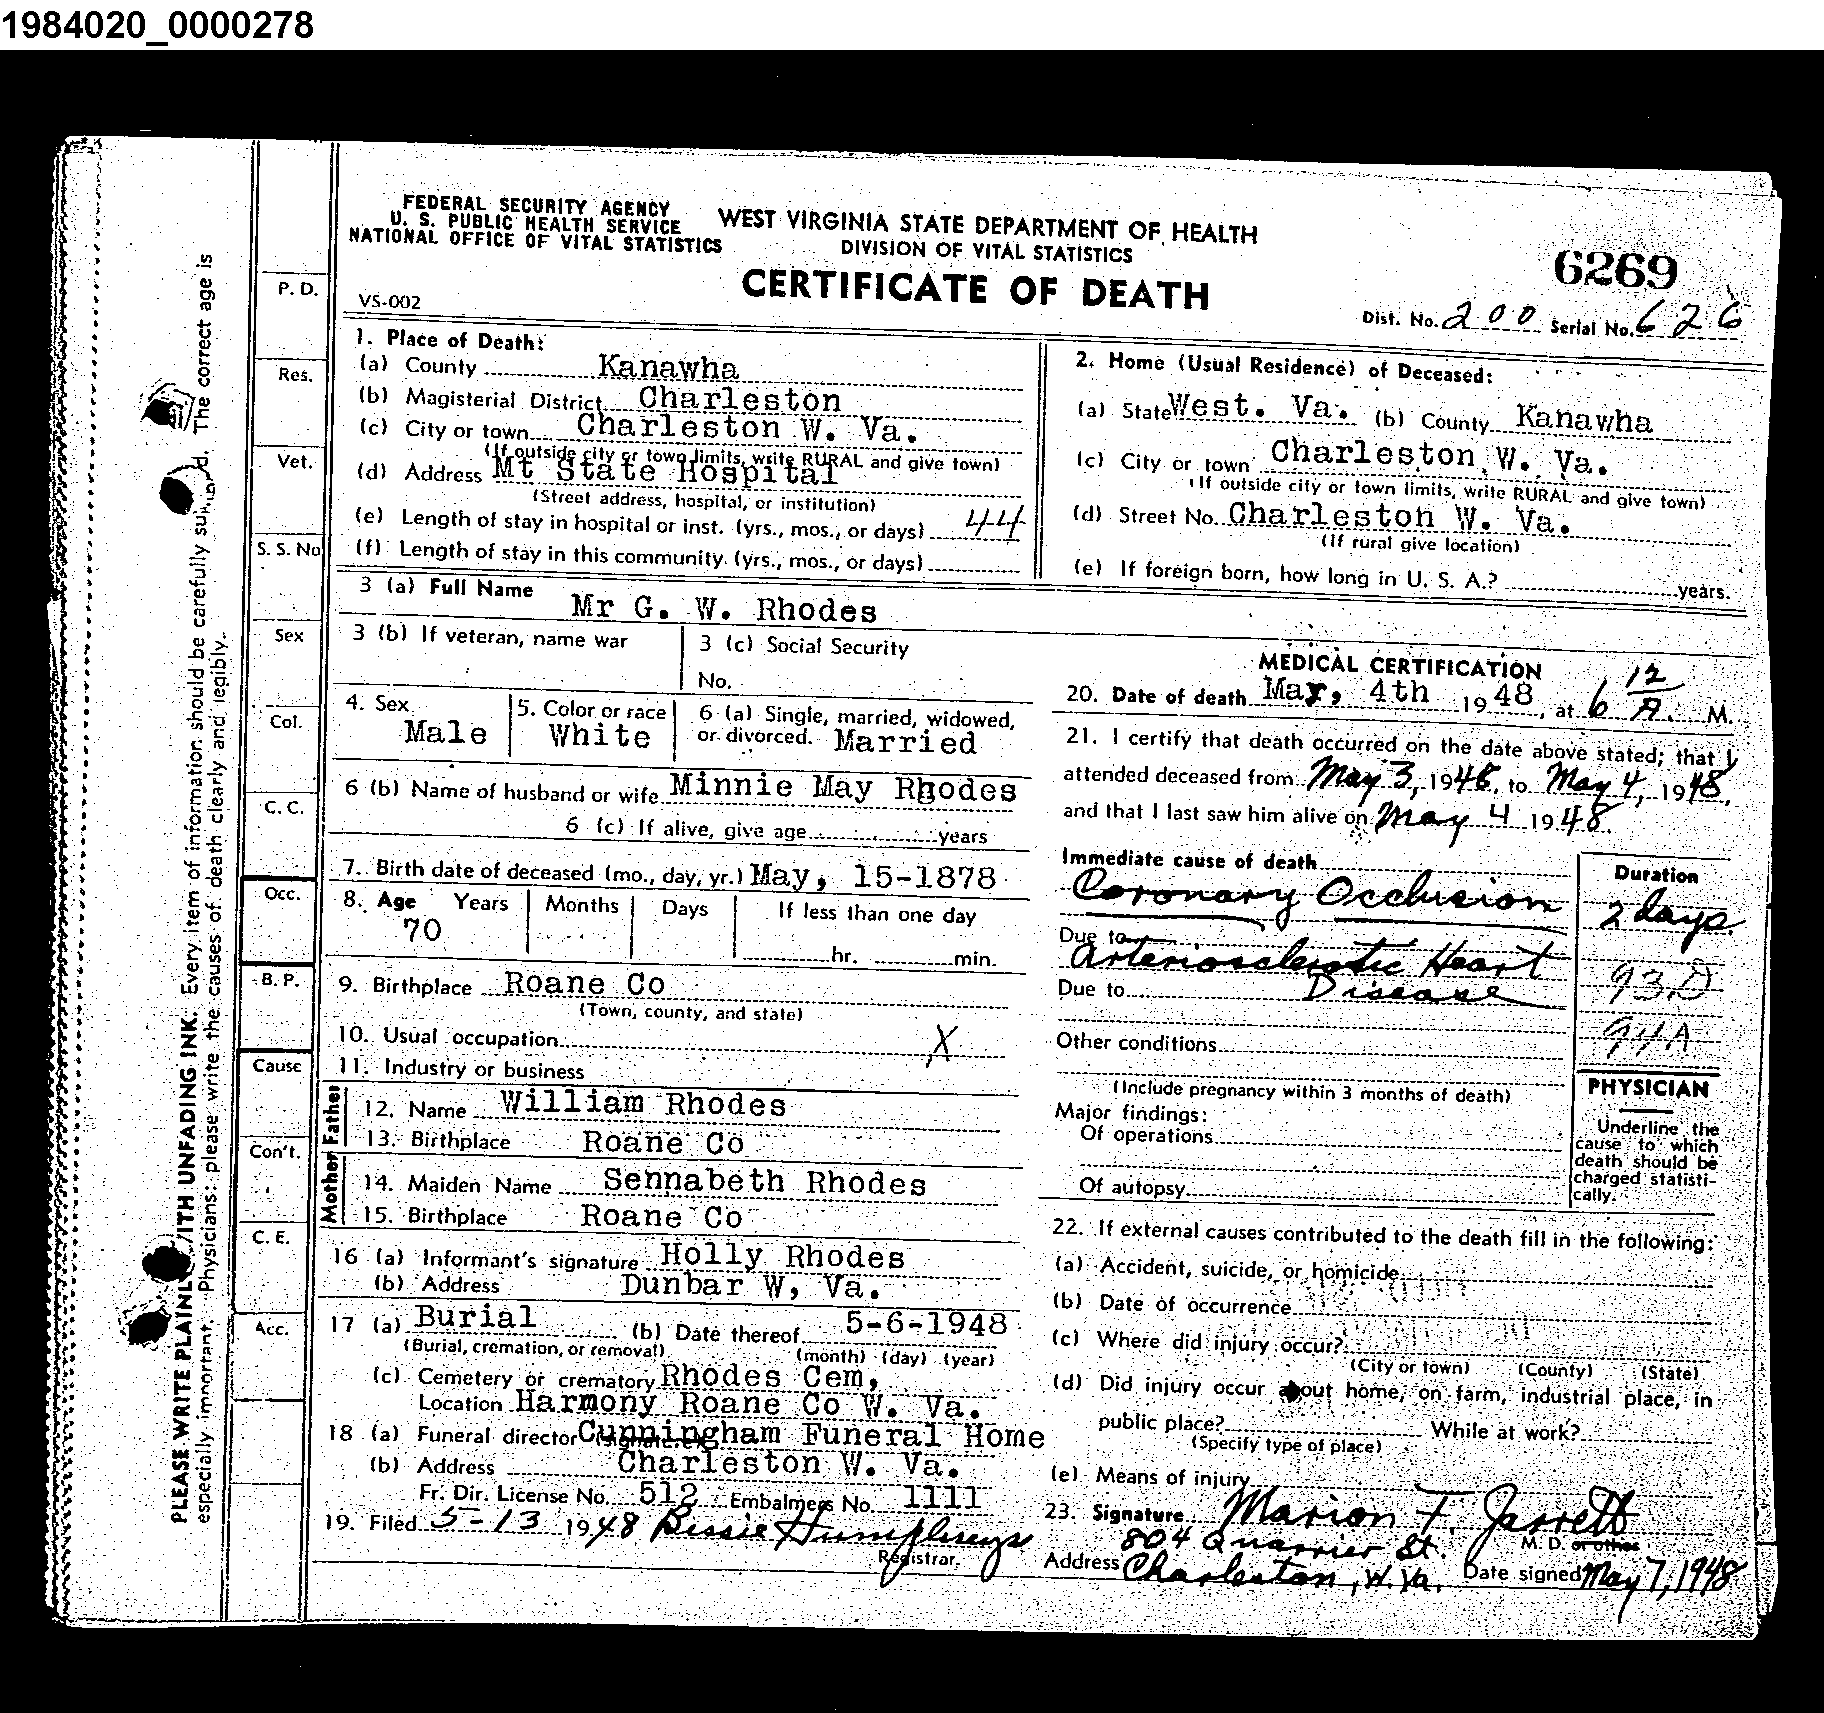 1984020_0000278
FEDERAL SECURITY AGENCY
U. S. PUBLIC HEALTH SERVICE
NATIONAL OFFICE OF VITAL STATISTICS
WEST VIRGINIA STATE DEPARTMENT OF HEALTH
DIVISION OF VITAL STATISTICS
CERTIFICATE OF DEATH
6269
VS-002
Dist. No. 200 Serial No. 626
PLEASE WRITE PLAINLY WITH UNFADING INK. Every item of information should be carefully supplied. The correct age is
especially important. Physicians: please write the causes of death clearly and legibly.
P. D.
Res.
Vet.
S. S. No
Sex
Col.
C. C.
Occ.
B. P.
Cause
Con't.
C. E.
Acc.
1. Place of Death:
(a) County Kanawha
(b) Magisterial District Charleston
(c) City or town Charleston W. Va.
(If outside city or town limits, write RURAL and give town)
(d) Address Mt State Hospital
(Street address, hospital, or institution)
(e) Length of stay in hospital or inst. (yrs., mos., or days) 44
(f) Length of stay in this community. (yrs., mos., or days)
2. Home (Usual Residence) of Deceased:
(a) State West. Va. (b) County Kanawha
(c) City or town Charleston W. Va.
(If outside city or town limits, write RURAL and give town)
(d) Street No. Charleston W. Va.
(If rural give location)
(e) If foreign born, how long in U. S. A.? years.
3 (a) Full Name Mr G. W. Rhodes
3 (b) If veteran, name war
3 (c) Social Security
No.
4. Sex Male
5. Color or race White
6 (a) Single, married, widowed,
or divorced. Married
6 (b) Name of husband or wife Minnie May Rhodes
6 (c) If alive, give age years
7. Birth date of deceased (mo., day, yr.) May, 15-1878
8. Age Years Months Days If less than one day
70 hr. min.
9. Birthplace Roane Co
(Town, county, and state)
10. Usual occupation X
11. Industry or business
Father
12. Name William Rhodes
13. Birthplace Roane Co
Mother
14. Maiden Name Sennabeth Rhodes
15. Birthplace Roane Co
16 (a) Informant's signature Holly Rhodes
(b) Address Dunbar W, Va.
17 (a) Burial (b) Date thereof 5-6-1948
(Burial, cremation, or removal) (month) (day) (year)
(c) Cemetery or crematory Rhodes Cem,
Location Harmony Roane Co W. Va.
18 (a) Funeral director Cunningham Funeral Home
(b) Address Charleston W. Va.
Fr. Dir. License No. 512 Embalmers No. 1111
19. Filed 5-13 1948 Bessie Humphreys
Registrar.
MEDICAL CERTIFICATION
20. Date of death May, 4th 1948, at 6 12 A. M.
21. I certify that death occurred on the date above stated; that I
attended deceased from May 3, 1948, to May 4, 1948,
and that I last saw him alive on May 4 1948.
Immediate cause of death
Coronary Occlusion
Duration
2 days.
Due to
Arteriosclerotic Heart
Due to Disease
93D
94A
Other conditions
(Include pregnancy within 3 months of death)
Major findings:
Of operations
Of autopsy
PHYSICIAN
Underline the
cause to which
death should be
charged statisti-
cally.
22. If external causes contributed to the death fill in the following:
(a) Accident, suicide, or homicide
(b) Date of occurrence
(c) Where did injury occur?
(City or town) (County) (State)
(d) Did injury occur about home, on farm, industrial place, in
public place? While at work?
(Specify type of place)
(e) Means of injury
23. Signature Marion T. Jarrett
M. D. or other
Address 804 Quarrier St.
Charleston, W. Va. Date signed May 7, 1948